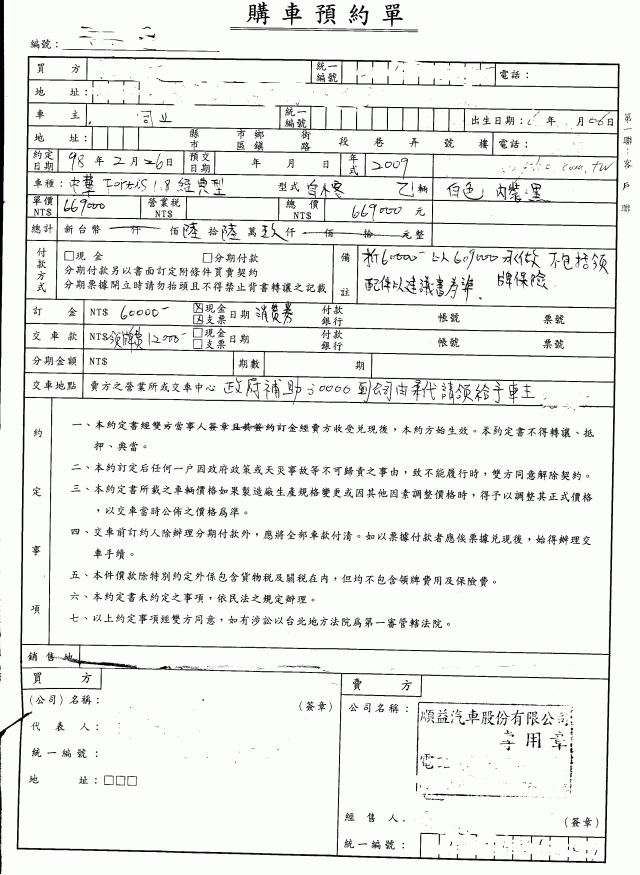 購車預約單
編號：
買方 統一編號 電話：
地址：
車主 統一編號 出生日期： 月 日
地址： 縣市 鄉鎮市區 街路 段 巷 弄 號 樓 電話：
約定日期 98年2月26日 預交日期 年 月 日 年式 2009 com.tw
車種：中華 Fortis 1.8 經典型 型式 自小客 乙輛 白色 內裝：黑
單價NT$ 669000 營業稅NT$ 總價NT$ 669000 元
總計 新台幣 仟 佰 陸 拾 陸 萬 玖 仟 佰 拾 元整
付款方式 □現金 □分期付款
分期付款另以書面訂定附條件買賣契約
分期票據開立時請勿抬頭且不得禁止背書轉讓之記載
備註 折60000- 以609000承做 不包括領
牌保險
配件以建議書為準
訂金 NT$ 60000- 現金 支票 日期 消費券 付款銀行 帳號 票號
交車款 NT$ 領牌費12000- □現金 □支票 日期 付款銀行 帳號 票號
分期金額 NT$ 期數 期
交車地點 賣方之營業所或交車中心 政府補助30000 到公司由 代請領給予車主
約定事項
一、本約定書經雙方當事人簽章且其簽約訂金經賣方收受兌現後，本約方始生效。本約定書不得轉讓、抵
押、典當。
二、本約訂定后任何一戶因政府政策或天災事故等不可歸責之事由，致不能履行時，雙方同意解除契約。
三、本約定書所載之車輛價格如果製造廠生產規格變更或因其他因素調整價格時，得予以調整其正式價格
，以交車當時公佈之價格為準。
四、交車前訂約人除辦理分期付款外，應將全部車款付清。如以票據付款者應俟票據兌現後，始得辦理交
車手續。
五、本件價款除特別約定外係包含貨物稅及關稅在內，但均不包含領牌費用及保險費。
六、本約定書未約定之事項，依民法之規定辦理。
七、以上約定事項經雙方同意，如有涉訟以台北地方法院為第一審管轄法院。
銷售地
買方
(公司)名稱： (簽章)
代表人：
統一編號：
地址：□□□
賣方
公司名稱： 順益汽車股份有限公司
專用章
電
經售人 (簽章)
統一編號：
第一聯：客戶聯